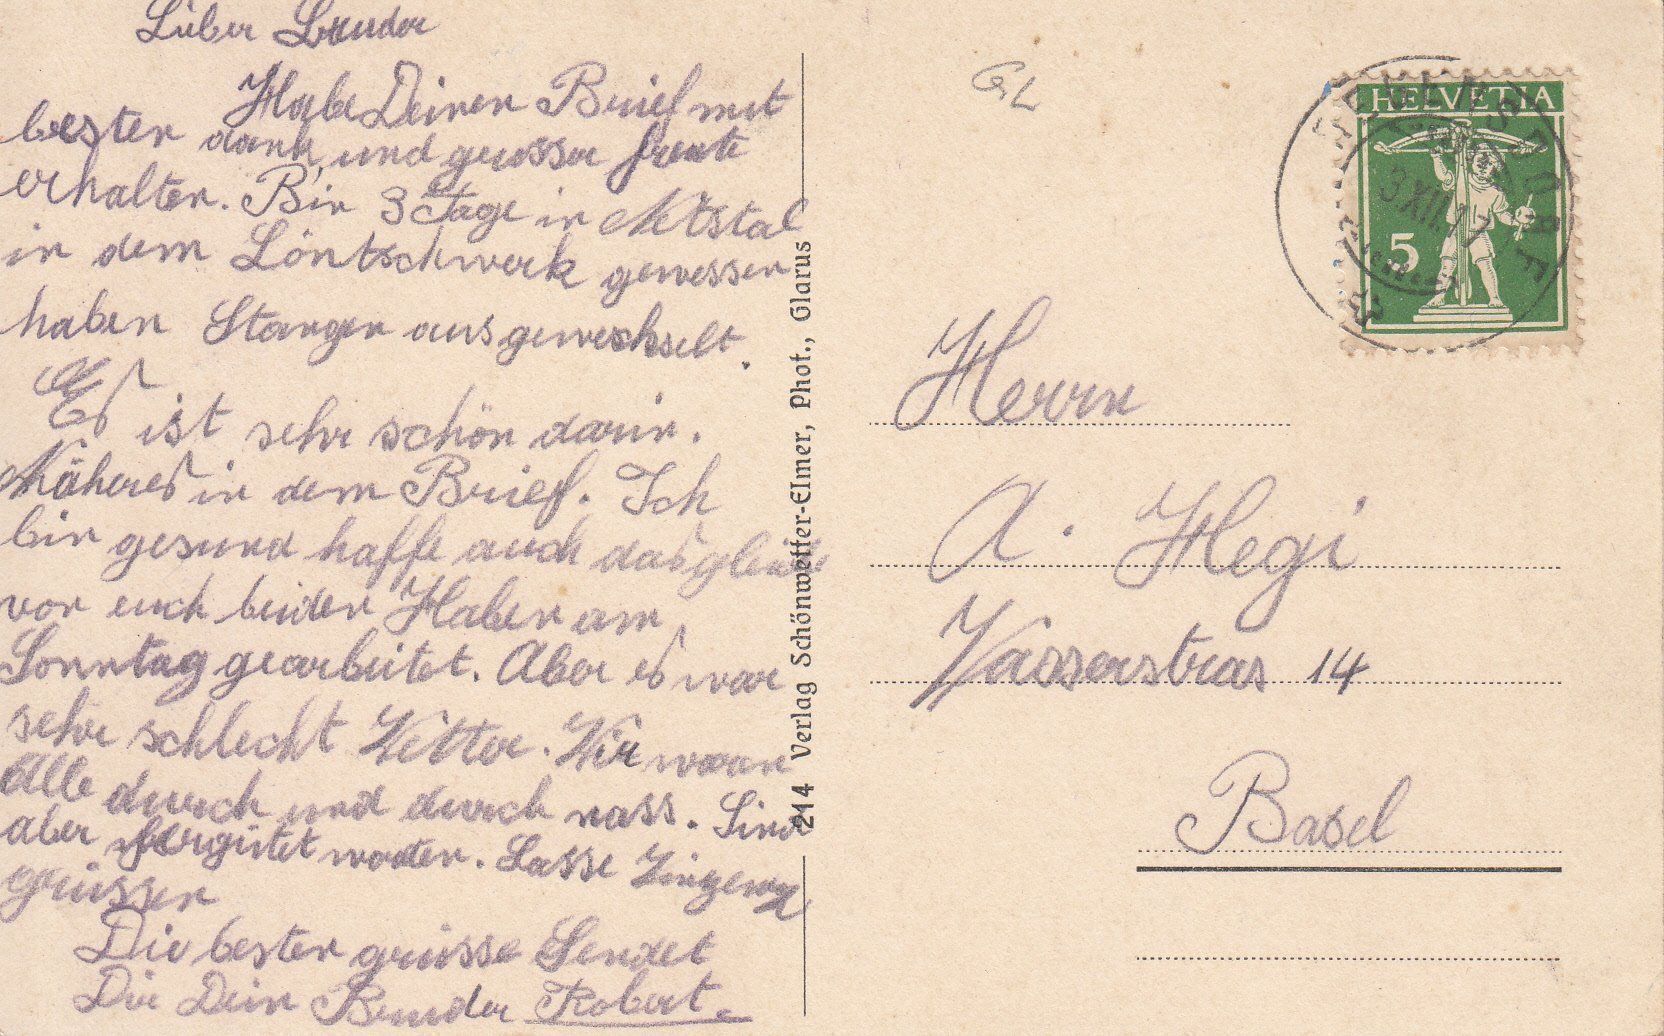 Lieber Bruder
Habe Deinen Brief mit
besten dank und grosser freute
erhalten. Bin 3 Tage in Netstal
in dem Löntschwerk gewessen
haben Stangen ausgewechselt.
Es ist sehr schön darin.
Näheres in dem Brief. Ich
bin gesund haffe auch das gleiche
von euch beiden Haben am
Sonntag gearbeitet. Aber es war
sehr schlecht Wetter. Wir waren
Alle durch und durch nass. Sind
aber fergütet worden. Lasse
grüssen
Die besten grüsse Sendet
Dir Dein Bruder Robert.
214 Verlag Schönwetter-Elmer, Phot., Glarus
GL
HELVETIA
5
3.XII.17
Herrn
A. Hegi
Wasserstras 14
Basel